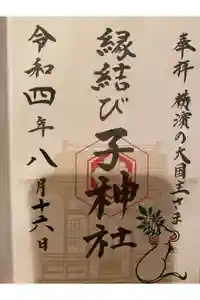 奉拝 横濱の大国主さま
縁結び 子神社
令和四年八月十六日